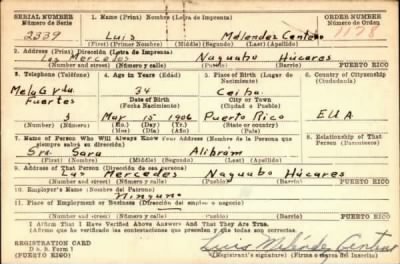 SERIAL NUMBER
Número de Serie
1. Name (Print) Nombre (Letra de Imprenta)
ORDER NUMBER
Número de Orden
2339
Luis Meléndez Centeno
1178
(First) (Primer Nombre) (Middle) (Segundo) (Last) (Apellido)
2. Address (Print) Dirección (Letra de Imprenta)
Las Mercedes Naguabo Húcares
(Number and street) (Número y calle) (Pueblo) (Barrio) PUERTO RICO
3. Telephone (Teléfono)
4. Age in Years (Edad)
5. Place of Birth (Lugar de Nacimiento)
6. Country of Citizenship (Ciudadanía)
34
Ceiba
Fuertes
Date of Birth
(Fecha Nacimiento)
City or Town
(Ciudad o Pueblo)
3 Mar 15 1906 Puerto Rico EUA
(Number) (Número) (Mo.) (Day) (Yr.)
(Mes) (Día) (Año)
(State or country)
(País)
7. Name of Person Who Will Always Know Your Address (Nombre de la Persona que siempre sabrá su dirección)
8. Relationship of That Person (Parentesco)
Sra. Sara Alibrán
(First) (Nombre) (Middle) (Segundo) (Last) (Apellido)
9. Address of That Person (Dirección de esa persona)
Las Mercedes Naguabo Húcares
(Number and street) (Número y calle) (Pueblo) (Barrio) PUERTO RICO
10. Employer's Name (Nombre del Patrono)
Ninguno
11. Place of Employment or Business (Dirección del empleo o negocio)
(Number and street) (Número y calle) (Pueblo) (Barrio) PUERTO RICO
I Affirm That I Have Verified Above Answers And That They are True.
Afirmo que he verificado las contestaciones que preceden y que todas son correctas.
REGISTRATION CARD
D s s. Form 1
(PUERTO RICO)
Luis Meléndez Centeno
(Registrant's signature) (Firma o marca Inscrito)